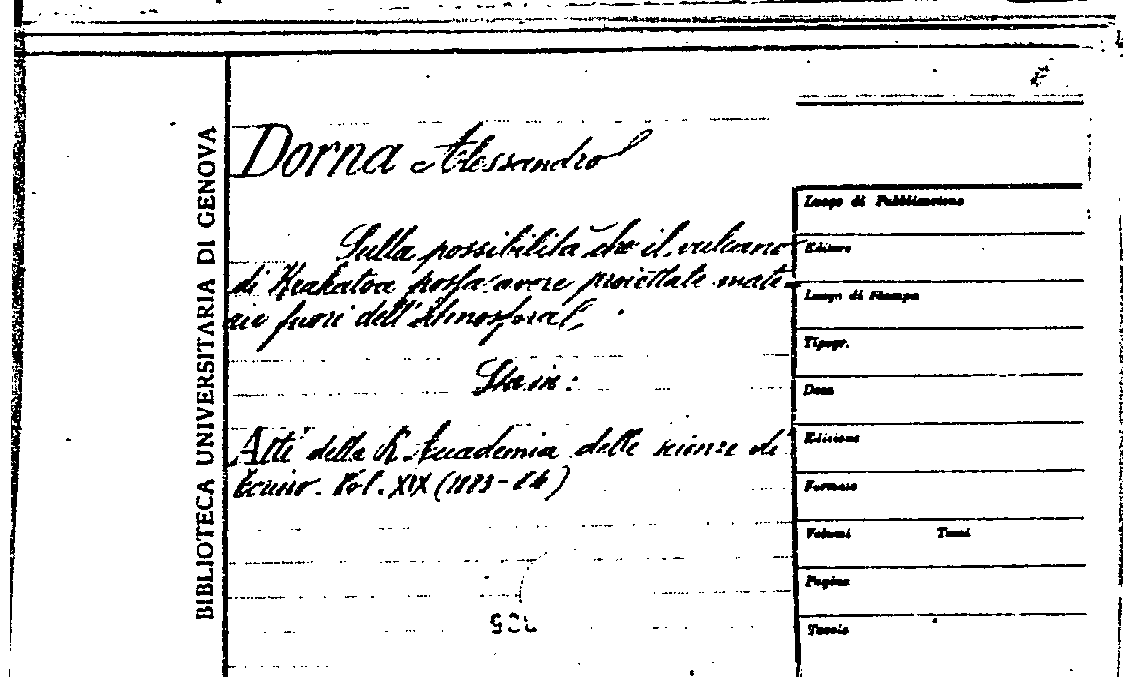 BIBLIOTECA UNIVERSITARIA DI GENOVA
Dorna Alessandro
Sulla possibilità che il vulcano
di Krakatoa possa avere proiettate mate-
rie fuori dell'Atmosfera,
Sta in:
Atti della R. Accademia delle scienze di
torino. Vol. XIX (1883-84)
Luogo di Pubblicazione
Editore
Luogo di Stampa
Tipogr.
Data
Edizione
Formato
Volumi Tomi
Pagine
Tavole